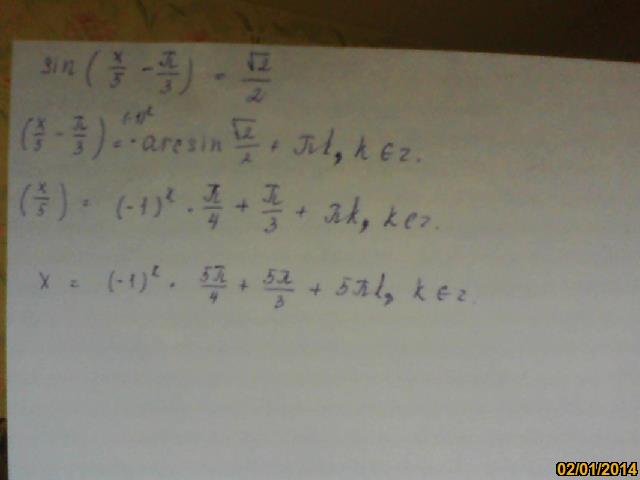 sin(x/5 - π/3) = √2/2
(x/5 - π/3) = (-1)^k · arcsin √2/2 + πk, k ∈ z.
(x/5) = (-1)^k · π/4 + π/3 + πk, k ∈ z.
x = (-1)^k · 5π/4 + 5π/3 + 5πk, k ∈ z.
02/01/2014